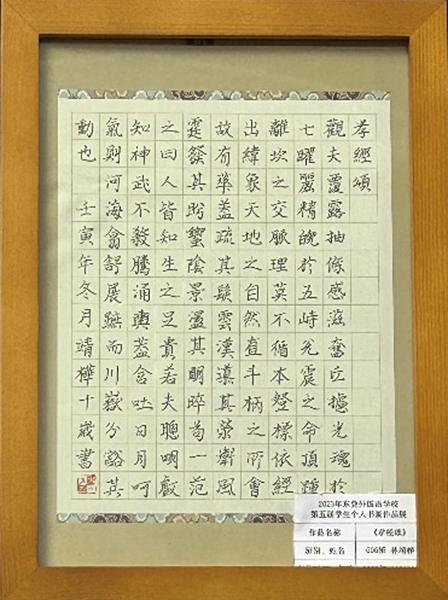 孝經頌
觀夫覆露抽條感滋奮丘攄光魂於
七曜麗精魄於五峙允震之命頂踵
離坎之交脈理莫不循本發標依經
出緯象天地之自然直斗柄之所會
故有華蓋疏其鬆雲漢其縈衛風
霆發其肹蠁陰景盪其明晬苟一范
之曰人皆知生之足貴若夫聰明叡
知神武不殺騰涌輿蓋含吐日月呵
氣則河海翕舒展蹠而川嶽分豁其
動也 壬寅年冬月靖樺十歲書
2023年东莞外国语学校
第五届学生个人书画作品展
作品名称 《孝经颂》
班别、姓名 林靖桦